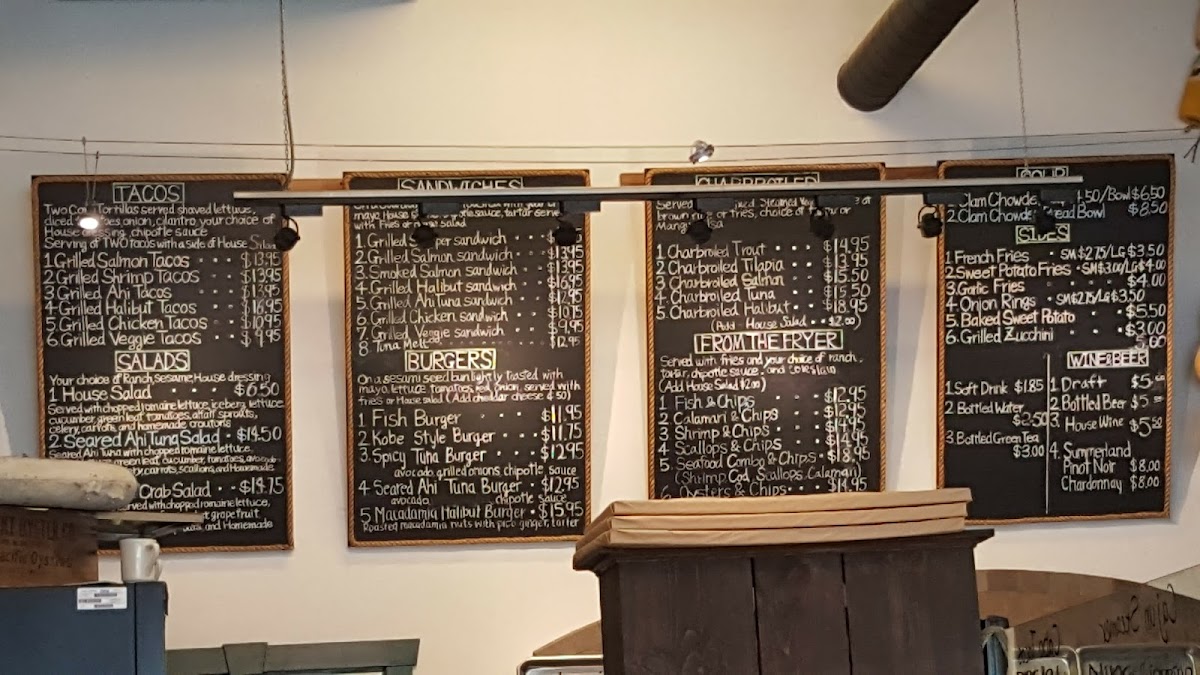 TACOS
Two Corn Tortillas served shaved lettuce,
diced tomatoes onion, cilantro, your choice of
House dressing, chipotle sauce
Serving of TWO tacos with a side of House Salad
1 Grilled Salmon Tacos $13.95
2 Grilled Shrimp Tacos $13.95
3 Grilled Ahi Tacos $13.95
4 Grilled Halibut Tacos $16.95
5. Grilled Chicken Tacos $10.95
6. Grilled Veggie Tacos $9.95
SALADS
Your choice of Ranch, Sesame, House dressing
1 House Salad $6.50
Served with chopped romaine lettuce, iceberg lettuce
cucumber, green leaf, tomatoes, alfalfa sprouts,
celery, carrots, and homemade croutons
2 Seared Ahi Tuna Salad $14.50
Seared Ahi Tuna with chopped romaine lettuce,
green leaf, cucumber, tomatoes, avocado
carrots, scallions, and Homemade
Crab Salad $14.75
served with chopped romaine lettuce,
grapefruit
and Homemade
SANDWICHES
mayo, House sauce, tartar serve
with Fries or House salad
1. Grilled sandwich $13.95
2. Grilled Salmon sandwich $13.95
3. Smoked Salmon sandwich $13.95
4. Grilled Halibut sandwich $16.95
5. Grilled Ahi Tuna sandwich $12.95
6. Grilled Chicken sandwich $10.75
7. Grilled Veggie sandwich $9.95
8. Tuna Melt $12.95
BURGERS
On a sesami seed bun lightly toasted with
mayo, lettuce, tomatoes, red onion, served with
fries or House salad (Add cheddar cheese $.50)
1 Fish Burger $11.95
2. Kobe Style Burger $11.75
3. Spicy Tuna Burger $12.95
avocado, grilled onions, chipotle sauce
4 Seared Ahi Tuna Burger $12.95
avocado chipotle sauce
5 Macadamia Halibut Burger $15.95
Roasted macadamia nuts with pico ginger, tarter
CHARBROILED
Served Steamed
brown rice or fries, choice of or
Mango Salsa
1 Charbroiled Trout $14.95
2 Charbroiled Tilapia $13.95
3 Charbroiled Salmon $15.50
4 Charbroiled Tuna $15.50
5. Charbroiled Halibut $18.95
(Add House Salad $2.00)
FROM THE FRYER
Served with fries and your choice of ranch,
tartar, chipotle sauce, and coleslaw
(Add House Salad $2.00)
1 Fish & Chips $12.95
2 Calamari & Chips $12.95
3 Shrimp & Chips $14.95
4 Scallops & Chips $14.95
5. Seafood Combo & Chips $18.95
(Shrimp, Cod, Scallops, Calamari)
6 Oysters & Chips $14.95
SOUP
1. Clam Chowder 4.50/Bowl $6.50
2. Clam Chowder Bread Bowl $8.50
SIDES
1 French Fries SM $2.75/LG $3.50
2. Sweet Potato Fries SM $3.00/LG $4.00
3. Garlic Fries $4.00
4 Onion Rings SM $2.75/LG $3.50
5. Baked Sweet Potato $5.50
6. Grilled Zucchini $3.00
5.00
1. Soft Drink $1.85
2 Bottled Water $2.50
3. Bottled Green Tea $3.00
WINE & BEER
1 Draft $5.
2 Bottled Beer $5
3. House Wine $5.50
4. Summerland
Pinot Noir $8.00
Chardonnay $8.00
Cajun Steamer